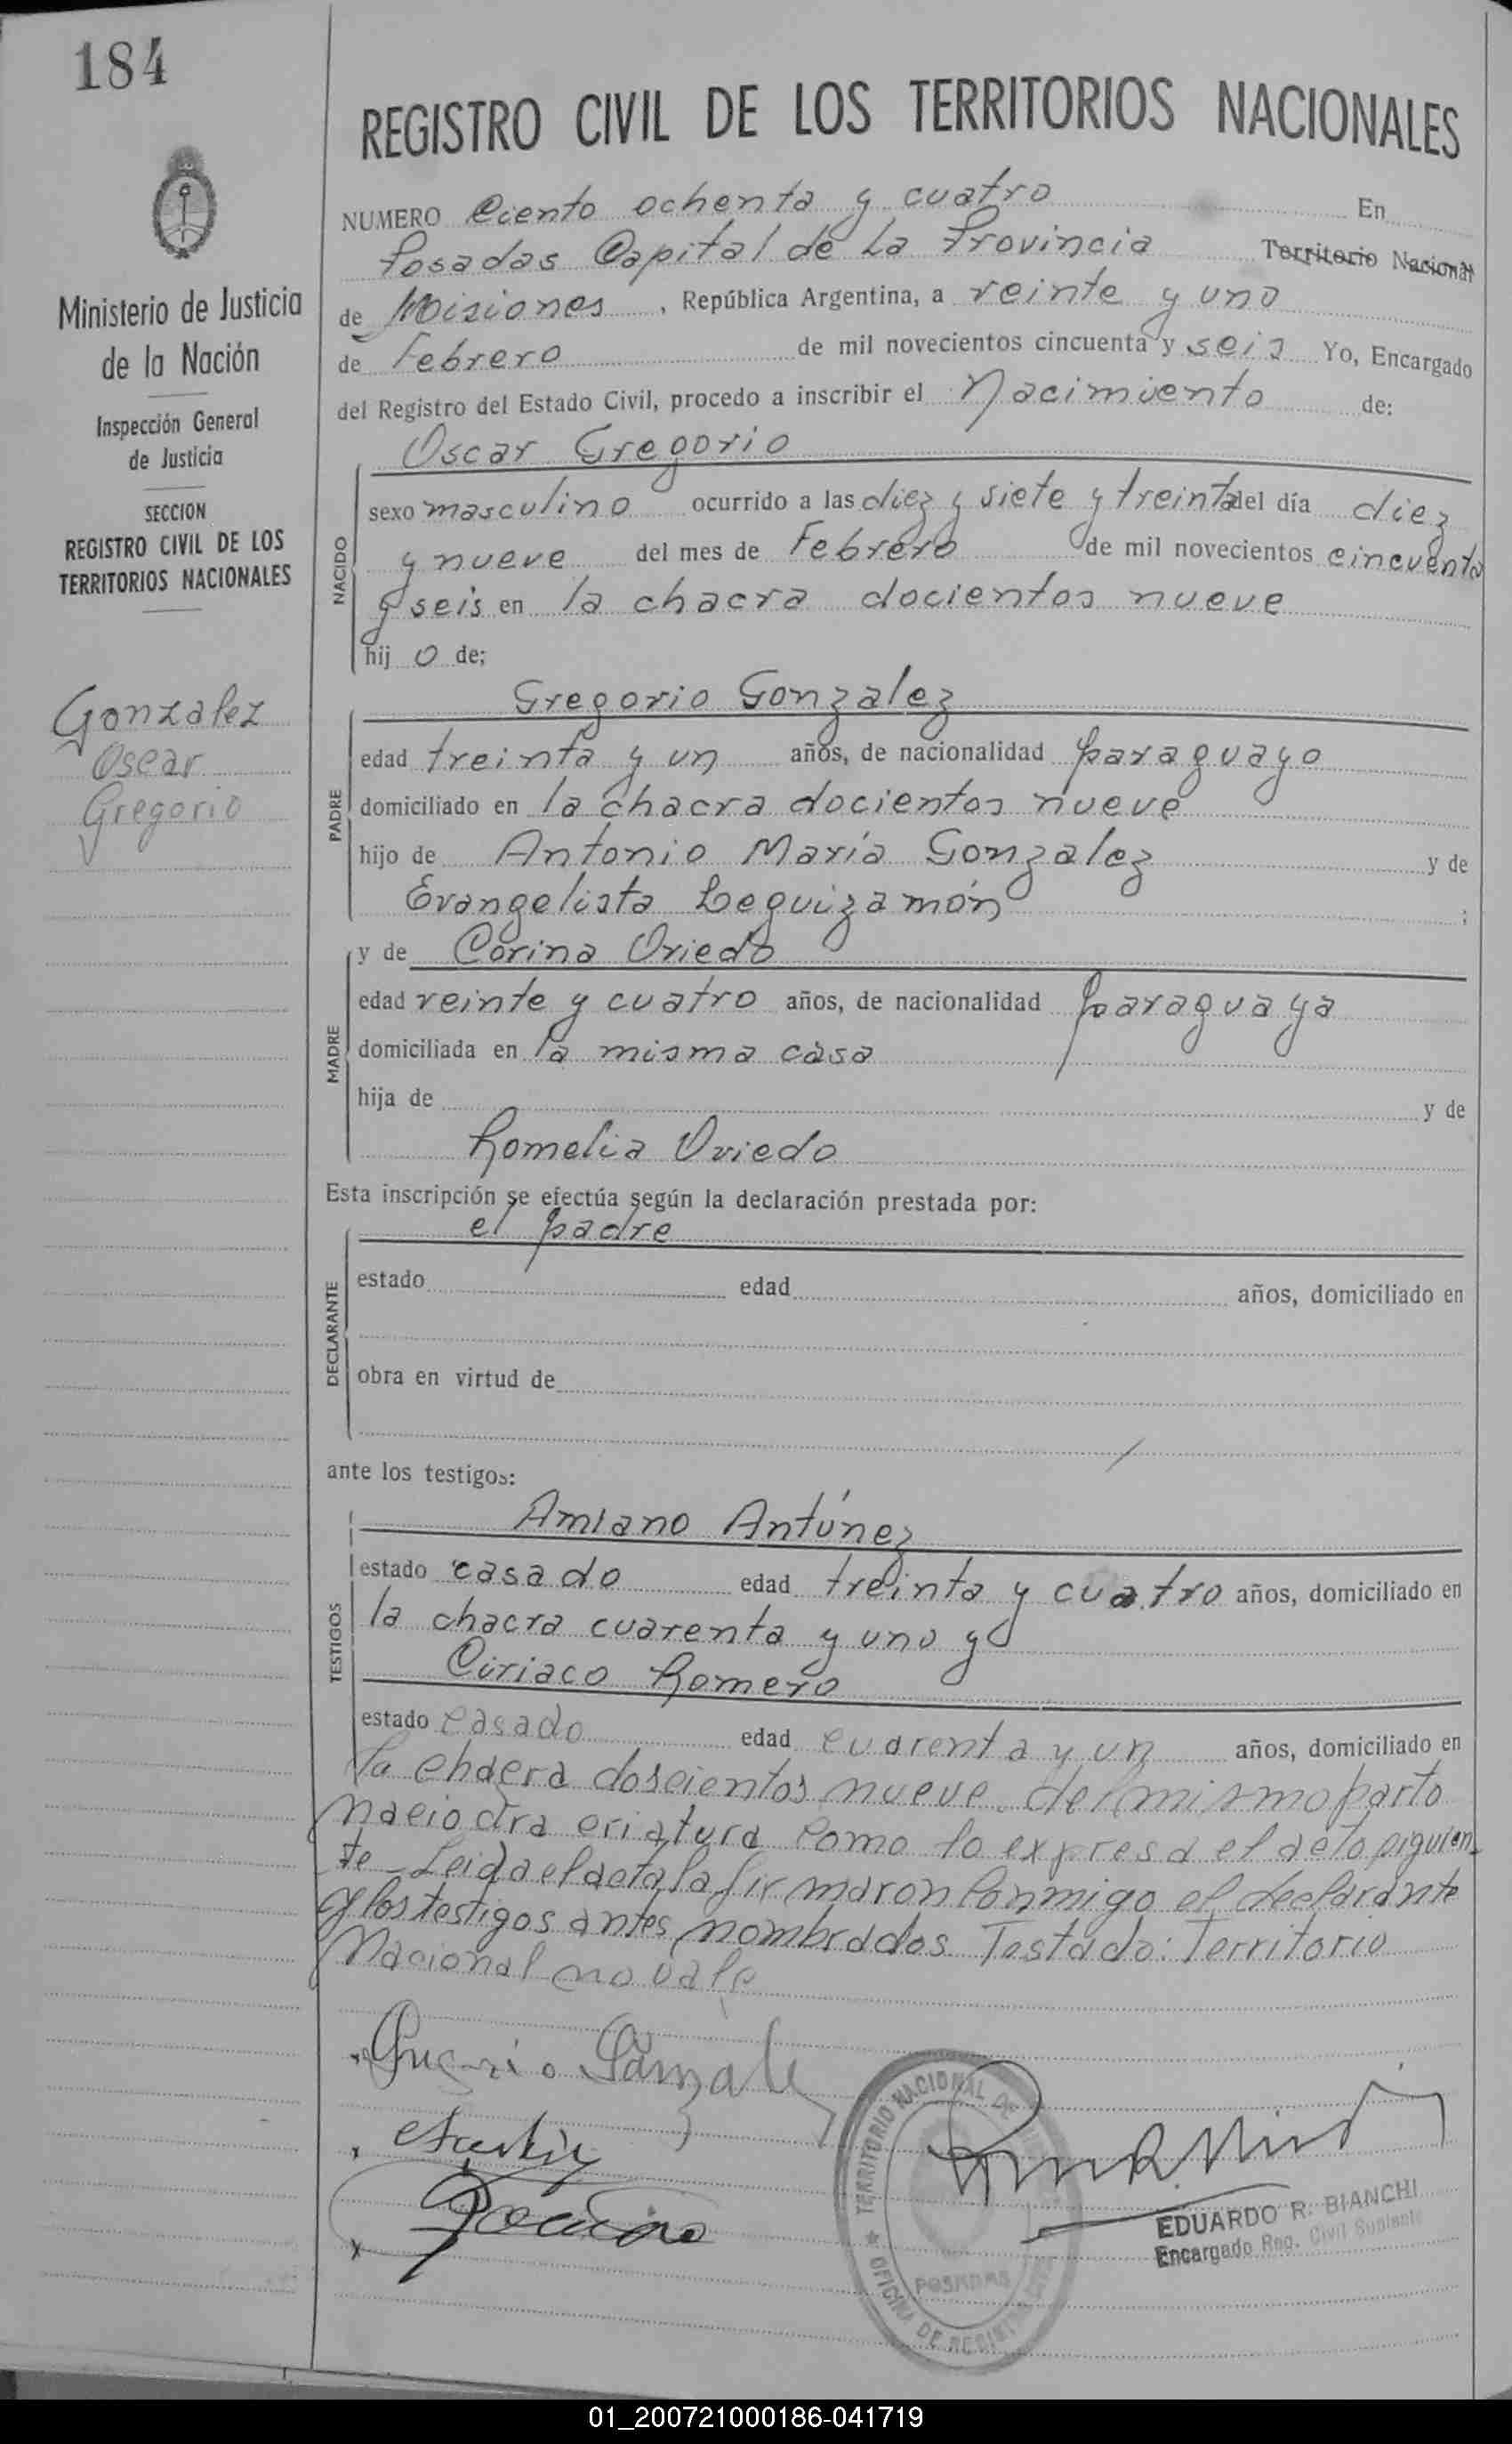 184
REGISTRO CIVIL DE LOS TERRITORIOS NACIONALES
Ministerio de Justicia
de la Nación
Inspección General
de Justicia
SECCION
REGISTRO CIVIL DE LOS
TERRITORIOS NACIONALES
Gonzalez
Oscar
Gregorio
NUMERO Ciento ochenta y cuatro En
Posadas Capital de La Provincia Territorio Nacional
de Misiones, República Argentina, a veinte y uno
de Febrero de mil novecientos cincuenta y seis Yo, Encargado
del Registro del Estado Civil, procedo a inscribir el Nacimiento de:
NACIDO
Oscar Gregorio
sexo masculino ocurrido a las diez y siete y treinta del día diez
y nueve del mes de Febrero de mil novecientos cincuenta
y seis en la chacra docientos nueve
hijo de;
PADRE
Gregorio Gonzalez
edad treinta y un años, de nacionalidad paraguayo
domiciliado en la chacra docientos nueve
hijo de Antonio María Gonzalez y de
Evangelista Leguizamón ;
MADRE
y de Corina Oviedo
edad veinte y cuatro años, de nacionalidad paraguaya
domiciliada en la misma casa
hija de y de
Romelia Oviedo
Esta inscripción se efectúa según la declaración prestada por:
DECLARANTE
el padre
estado edad años, domiciliado en
obra en virtud de
ante los testigos:
TESTIGOS
Amiano Antúnez
estado casado edad treinta y cuatro años, domiciliado en
la chacra cuarenta y uno y
Ciriaco Romero
estado casado edad cuarenta y un años, domiciliado en
la chacra doscientos nueve. del mismo parto
nacio otra criatura como lo expresa el acto siguien-
te - Leida el acta, la firmaron conmigo el declarante
y los testigos antes nombrados. Testado: Territorio
Nacional no vale
TERRITORIO NACIONAL DE
OFICINA DE
POSADAS
EDUARDO R. BIANCHI
Encargado Reg. Civil Suplente
01_200721000186-041719